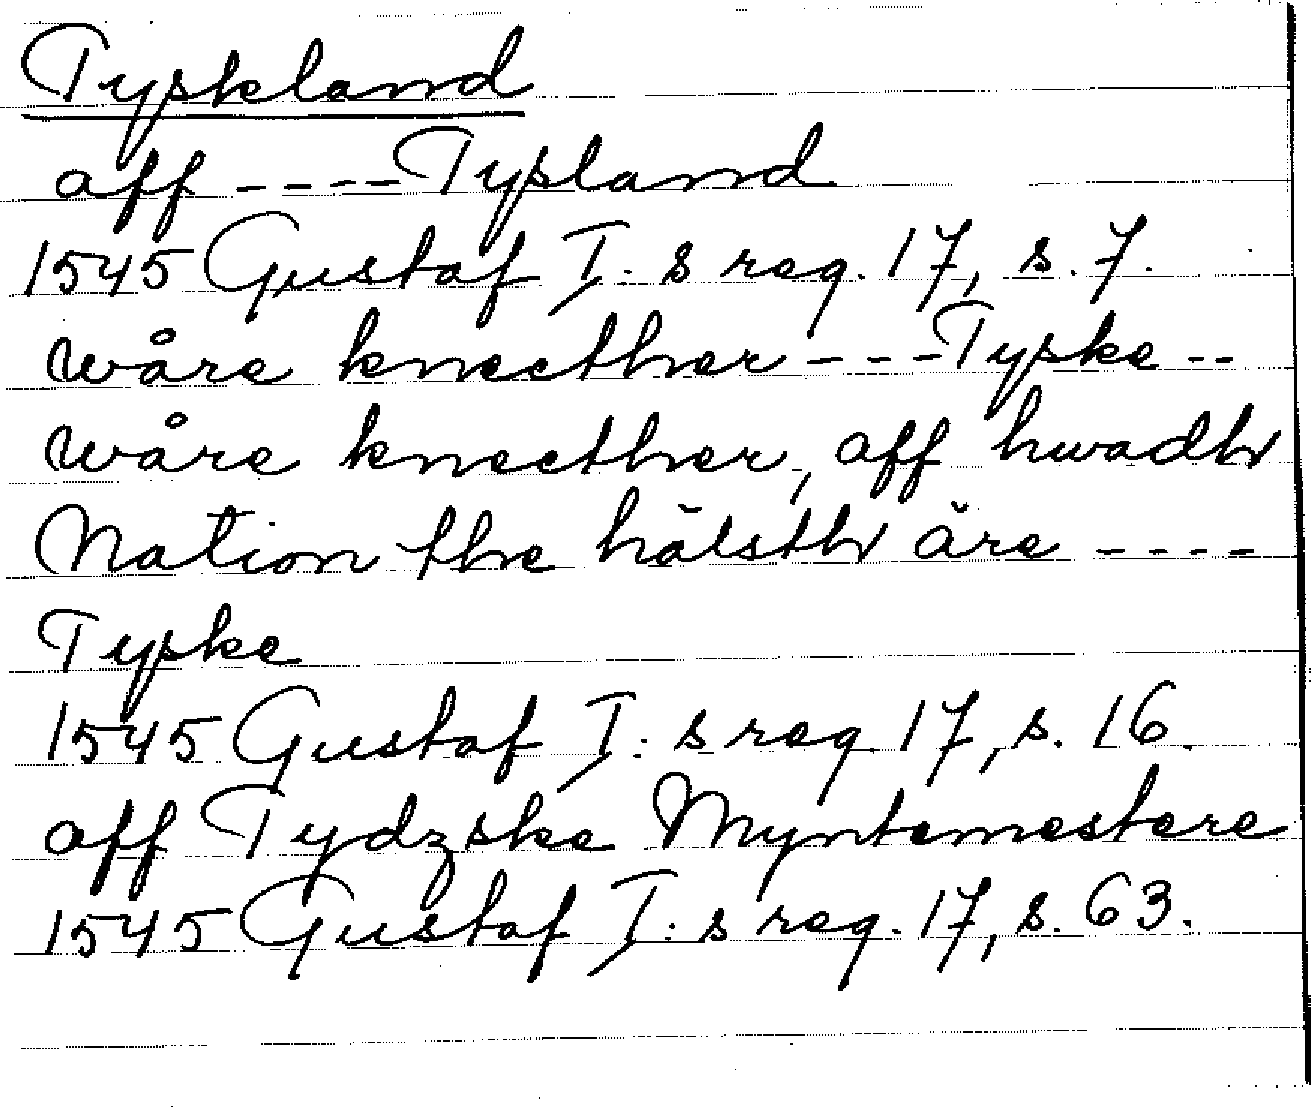 Tyskland
aff ---- Tysland
1545 Gustaf I:s reg. 17, s. 7.
wåre knecther --- Tyske --
wåre knecther, aff hwadh
Nation the hälsth äre ----
Tyske
1545 Gustaf I:s reg 17, s. 16.
aff Tydzske Myntemestere
1545 Gustaf I:s reg. 17, s. 63.